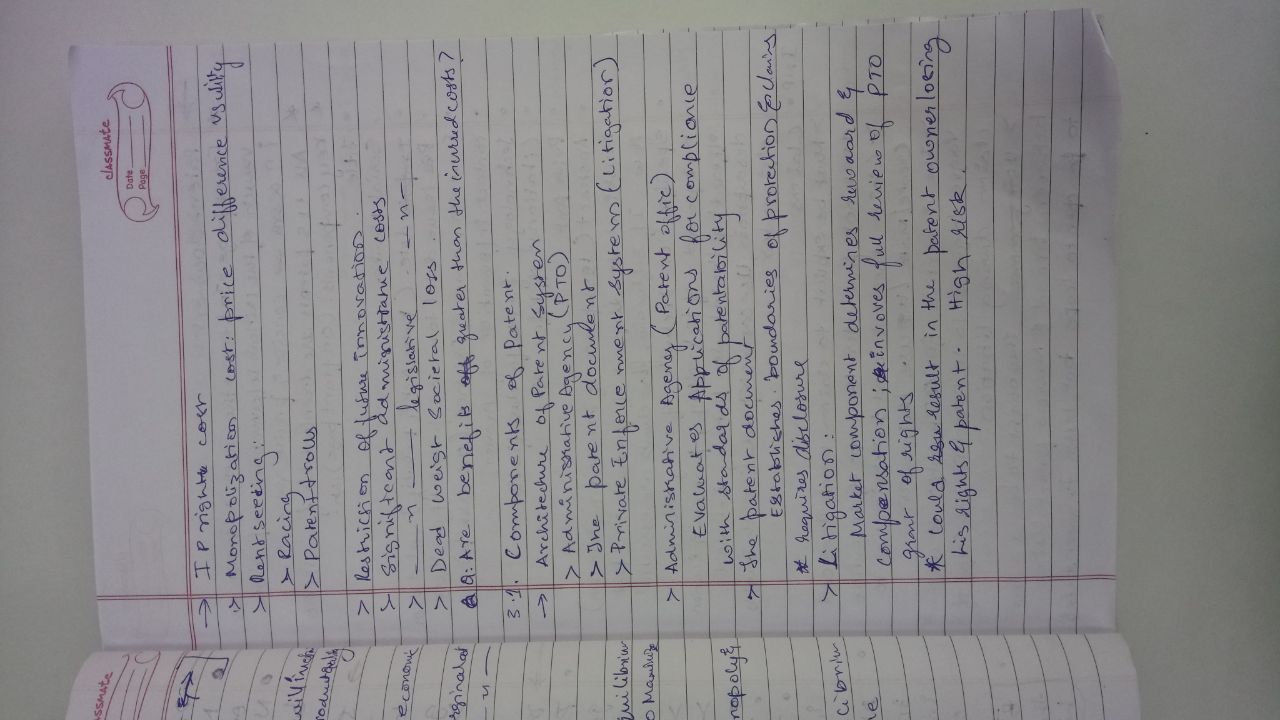 classmate
Date
Page
→ IP rights cost
> Monopolization cost: price difference vs utility
> Rent seeking:
> Racing
> Patent trolls
> Restriction of future innovation.
> Significant administrative costs
> —— n —— legislative —n—
> Dead weist societal loss.
Q: Are benefits greater than the incured costs?
3.1. Components of Patent.
→ Architecture of Patent System
> Administrative Agency (PTO)
> The patent document
> Private Enforcement System (Litigation)
> Administrative Agency (Patent offic)
Evaluates Applications for compliance
with standards of patentability
> The patent document
Establishes boundaries of protection & claims
* requires disclosure
> Litigation:
Market component determines reward &
compensation; invoves full review of PTO
grant of rights
* Could result in the patent owner losing
his rights & patent. High risk.
classmate
economic
n